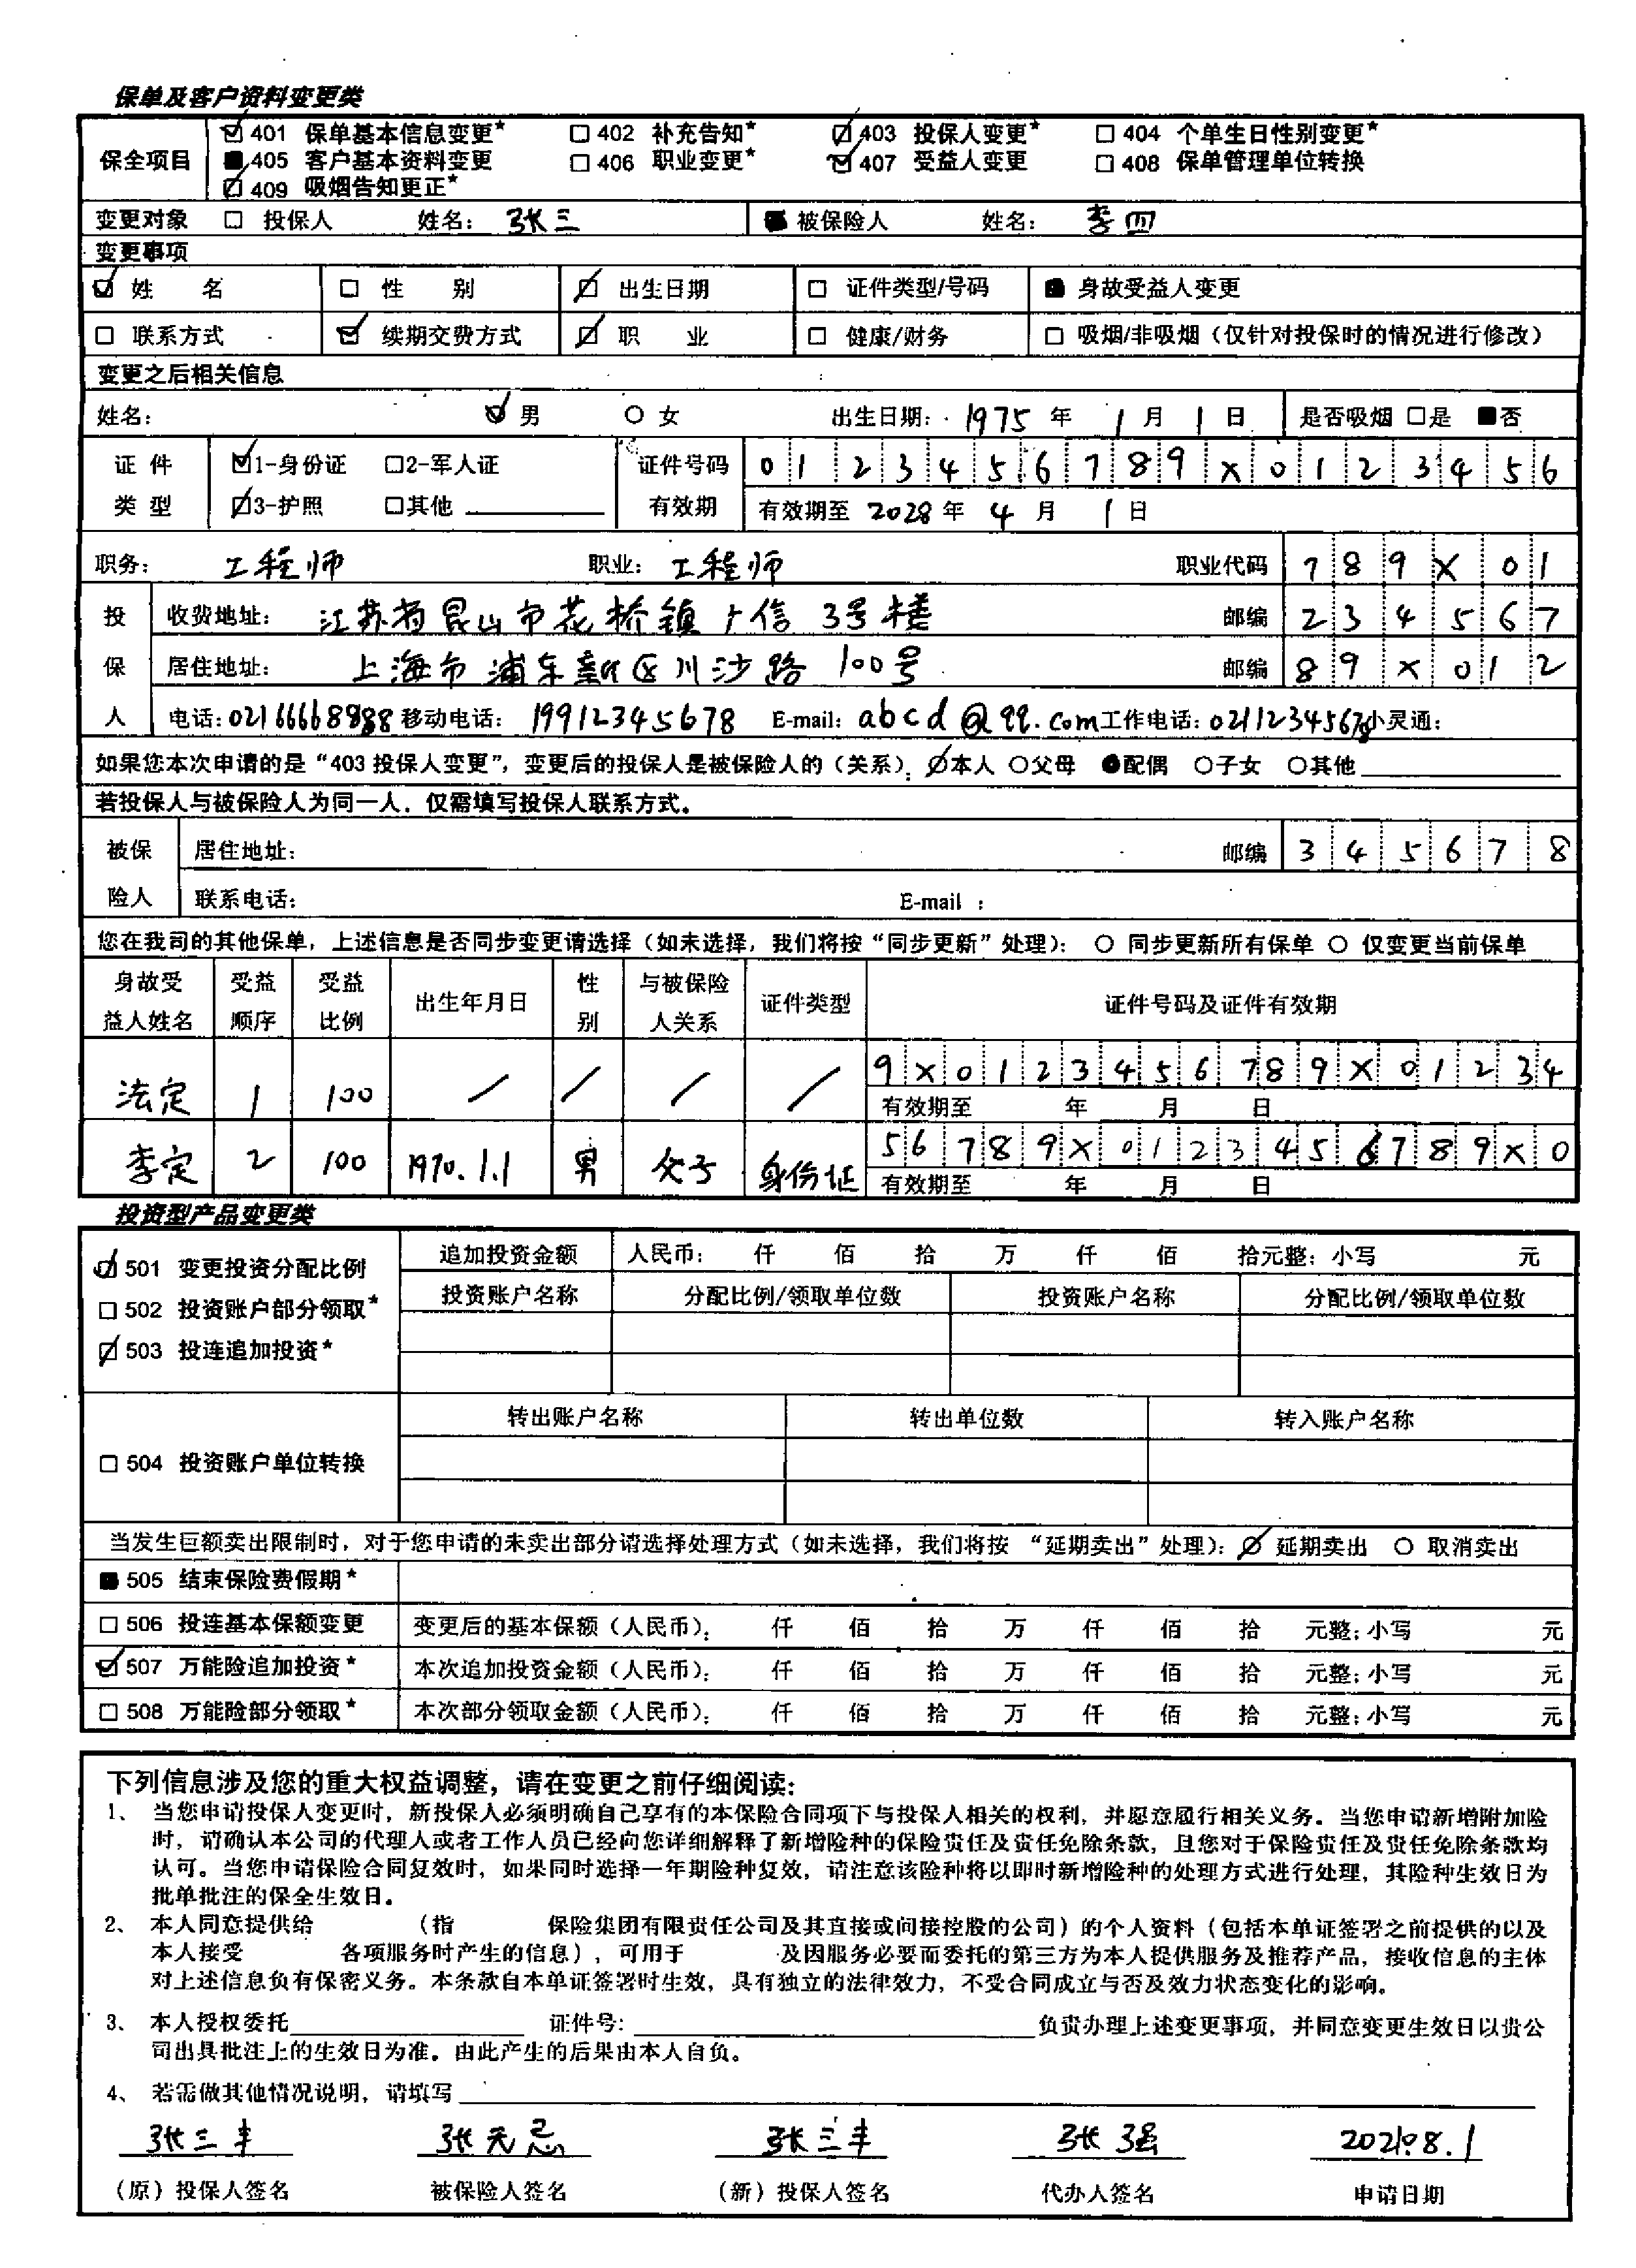 保单及客户资料变更类
保全项目 ☑ 401 保单基本信息变更* □ 402 补充告知* ☑ 403 投保人变更* □ 404 个单生日性别变更*
■ 405 客户基本资料变更 □ 406 职业变更* ☑ 407 受益人变更 □ 408 保单管理单位转换
☑ 409 吸烟告知更正*
变更对象 □ 投保人 姓名: 张三 ■ 被保险人 姓名: 李四
变更事项
☑ 姓 名 □ 性 别 ☑ 出生日期 □ 证件类型/号码 ■ 身故受益人变更
□ 联系方式 ☑ 续期交费方式 ☑ 职 业 □ 健康/财务 □ 吸烟/非吸烟(仅针对投保时的情况进行修改)
变更之后相关信息
姓名: ☑ 男 ○ 女 出生日期: 1975 年 1 月 1 日 是否吸烟 □是 ■否
证件类型 ☑1-身份证 □2-军人证 证件号码 0123456789X0123456
☑3-护照 □其他 有效期 有效期至 2028 年 4 月 1 日
职务: 工程师 职业: 工程师 职业代码 789X01
投保人 收费地址: 江苏省昆山市花桥镇广信3号楼 邮编 234567
居住地址: 上海市浦东新区川沙路100号 邮编 89X012
电话: 02166668888 移动电话: 19912345678 E-mail: abcd@qq.com 工作电话: 02112345678 小灵通:
如果您本次申请的是“403 投保人变更”, 变更后的投保人是被保险人的(关系): ☑本人 ○父母 ●配偶 ○子女 ○其他
若投保人与被保险人为同一人, 仅需填写投保人联系方式。
被保险人 居住地址: 邮编 345678
联系电话: E-mail :
您在我司的其他保单, 上述信息是否同步变更请选择(如未选择, 我们将按“同步更新”处理): ○ 同步更新所有保单 ○ 仅变更当前保单
身故受益人姓名 受益顺序 受益比例 出生年月日 性别 与被保险人关系 证件类型 证件号码及证件有效期
法定 1 100 / / / / 9X0123456789X01234
有效期至 年 月 日
李定 2 100 1970.1.1 男 父子 身份证 56789X0123456789X0
有效期至 年 月 日
投资型产品变更类
☑ 501 变更投资分配比例 追加投资金额 人民币: 仟 佰 拾 万 仟 佰 拾元整; 小写 元
投资账户名称 分配比例/领取单位数 投资账户名称 分配比例/领取单位数
□ 502 投资账户部分领取*
☑ 503 投连追加投资*
转出账户名称 转出单位数 转入账户名称
□ 504 投资账户单位转换
当发生巨额卖出限制时, 对于您申请的未卖出部分请选择处理方式(如未选择, 我们将按 “延期卖出”处理): ☑ 延期卖出 ○ 取消卖出
■ 505 结束保险费假期*
□ 506 投连基本保额变更 变更后的基本保额(人民币): 仟 佰 拾 万 仟 佰 拾 元整; 小写 元
☑ 507 万能险追加投资* 本次追加投资金额(人民币): 仟 佰 拾 万 仟 佰 拾 元整; 小写 元
□ 508 万能险部分领取* 本次部分领取金额(人民币): 仟 佰 拾 万 仟 佰 拾 元整; 小写 元
下列信息涉及您的重大权益调整, 请在变更之前仔细阅读:
1、 当您申请投保人变更时, 新投保人必须明确自己享有的本保险合同项下与投保人相关的权利, 并愿意履行相关义务。当您申请新增附加险
时, 请确认本公司的代理人或者工作人员已经向您详细解释了新增险种的保险责任及责任免除条款, 且您对于保险责任及责任免除条款均
认可。当您申请保险合同复效时, 如果同时选择一年期险种复效, 请注意该险种将以即时新增险种的处理方式进行处理, 其险种生效日为
批单批注的保全生效日。
2、 本人同意提供给 (指 保险集团有限责任公司及其直接或间接控股的公司)的个人资料(包括本单证签署之前提供的以及
本人接受 各项服务时产生的信息), 可用于 及因服务必要而委托的第三方为本人提供服务及推荐产品, 接收信息的主体
对上述信息负有保密义务。本条款自本单证签署时生效, 具有独立的法律效力, 不受合同成立与否及效力状态变化的影响。
3、 本人授权委托 证件号: 负责办理上述变更事项, 并同意变更生效日以贵公
司出具批注上的生效日为准。由此产生的后果由本人自负。
4、 若需做其他情况说明, 请填写
张三丰 张无忌 张三丰 张强 2021.8.1
(原)投保人签名 被保险人签名 (新)投保人签名 代办人签名 申请日期